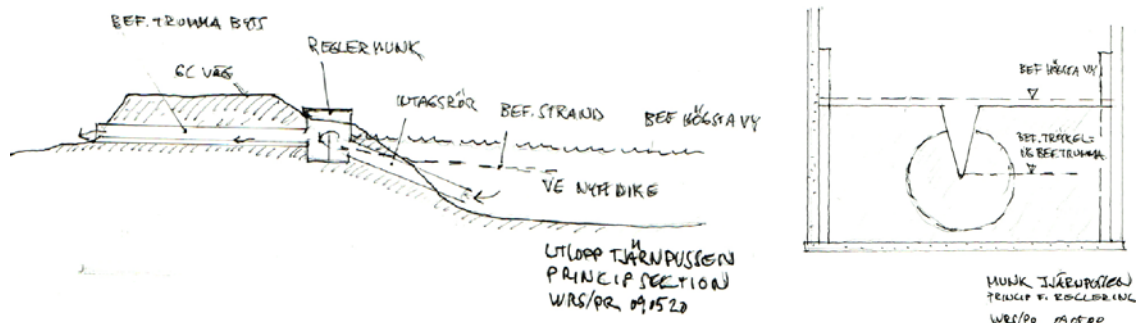 BEF. TRUMMA BYTS
REGLERMUNK
GC VÄG
INTAGSRÖR
BEF. STRAND
BEF HÖGSTA VY
VE NYTT DIKE
UTLOPP TJÄRNPUSSEN
PRINCIP SEKTION
WRS/PR 090520
BEF HÖGSTA VY
BEF. TRÖSKEL-
BEF. TRUMMA
MUNK TJÄRNPUSSEN
PRINCIP F. REGLERING
WRS/PR 090520